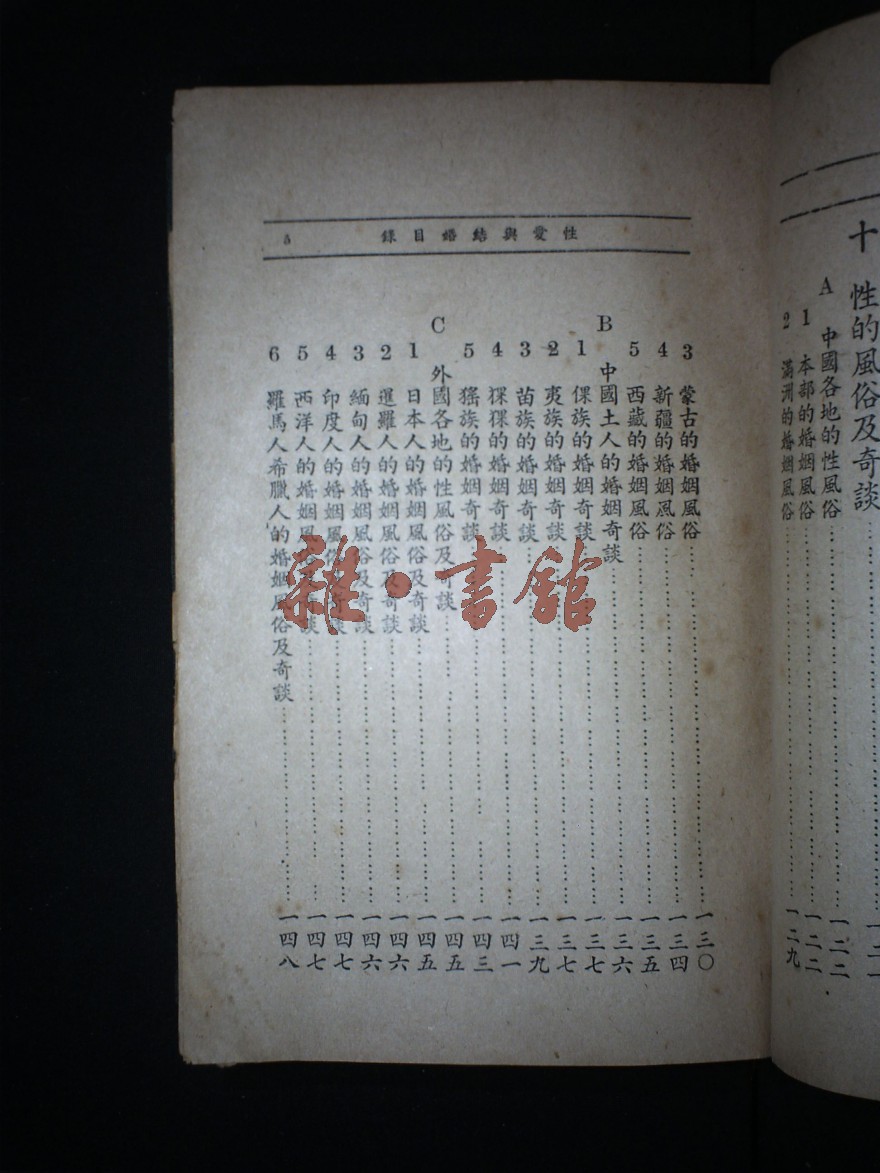 十 性的風俗及奇談
A 中國各地的性風俗……一二二
1 本部的婚姻風俗……一二二
2 滿洲的婚姻風俗……一二九
性愛與結婚目錄 5
3 蒙古的婚姻風俗……一三〇
4 新疆的婚姻風俗……一三四
5 西藏的婚姻風俗……一三五
B 中國土人的婚姻奇談……一三六
1 倮族的婚姻奇談……一三七
2 夷族的婚姻奇談……一三七
3 苗族的婚姻奇談……一三九
4 猓猓的婚姻奇談……一四一
5 猺族的婚姻奇談……一四三
C 外國各地的性風俗及奇談……一四五
1 日本人的婚姻風俗及奇談……一四五
2 暹羅人的婚姻風俗及奇談……一四六
3 緬甸人的婚姻風俗及奇談……一四六
4 印度人的婚姻風俗及奇談……一四七
5 西洋人的婚姻風俗及奇談……一四七
6 羅馬人希臘人的婚姻風俗及奇談……一四八
雜·書館